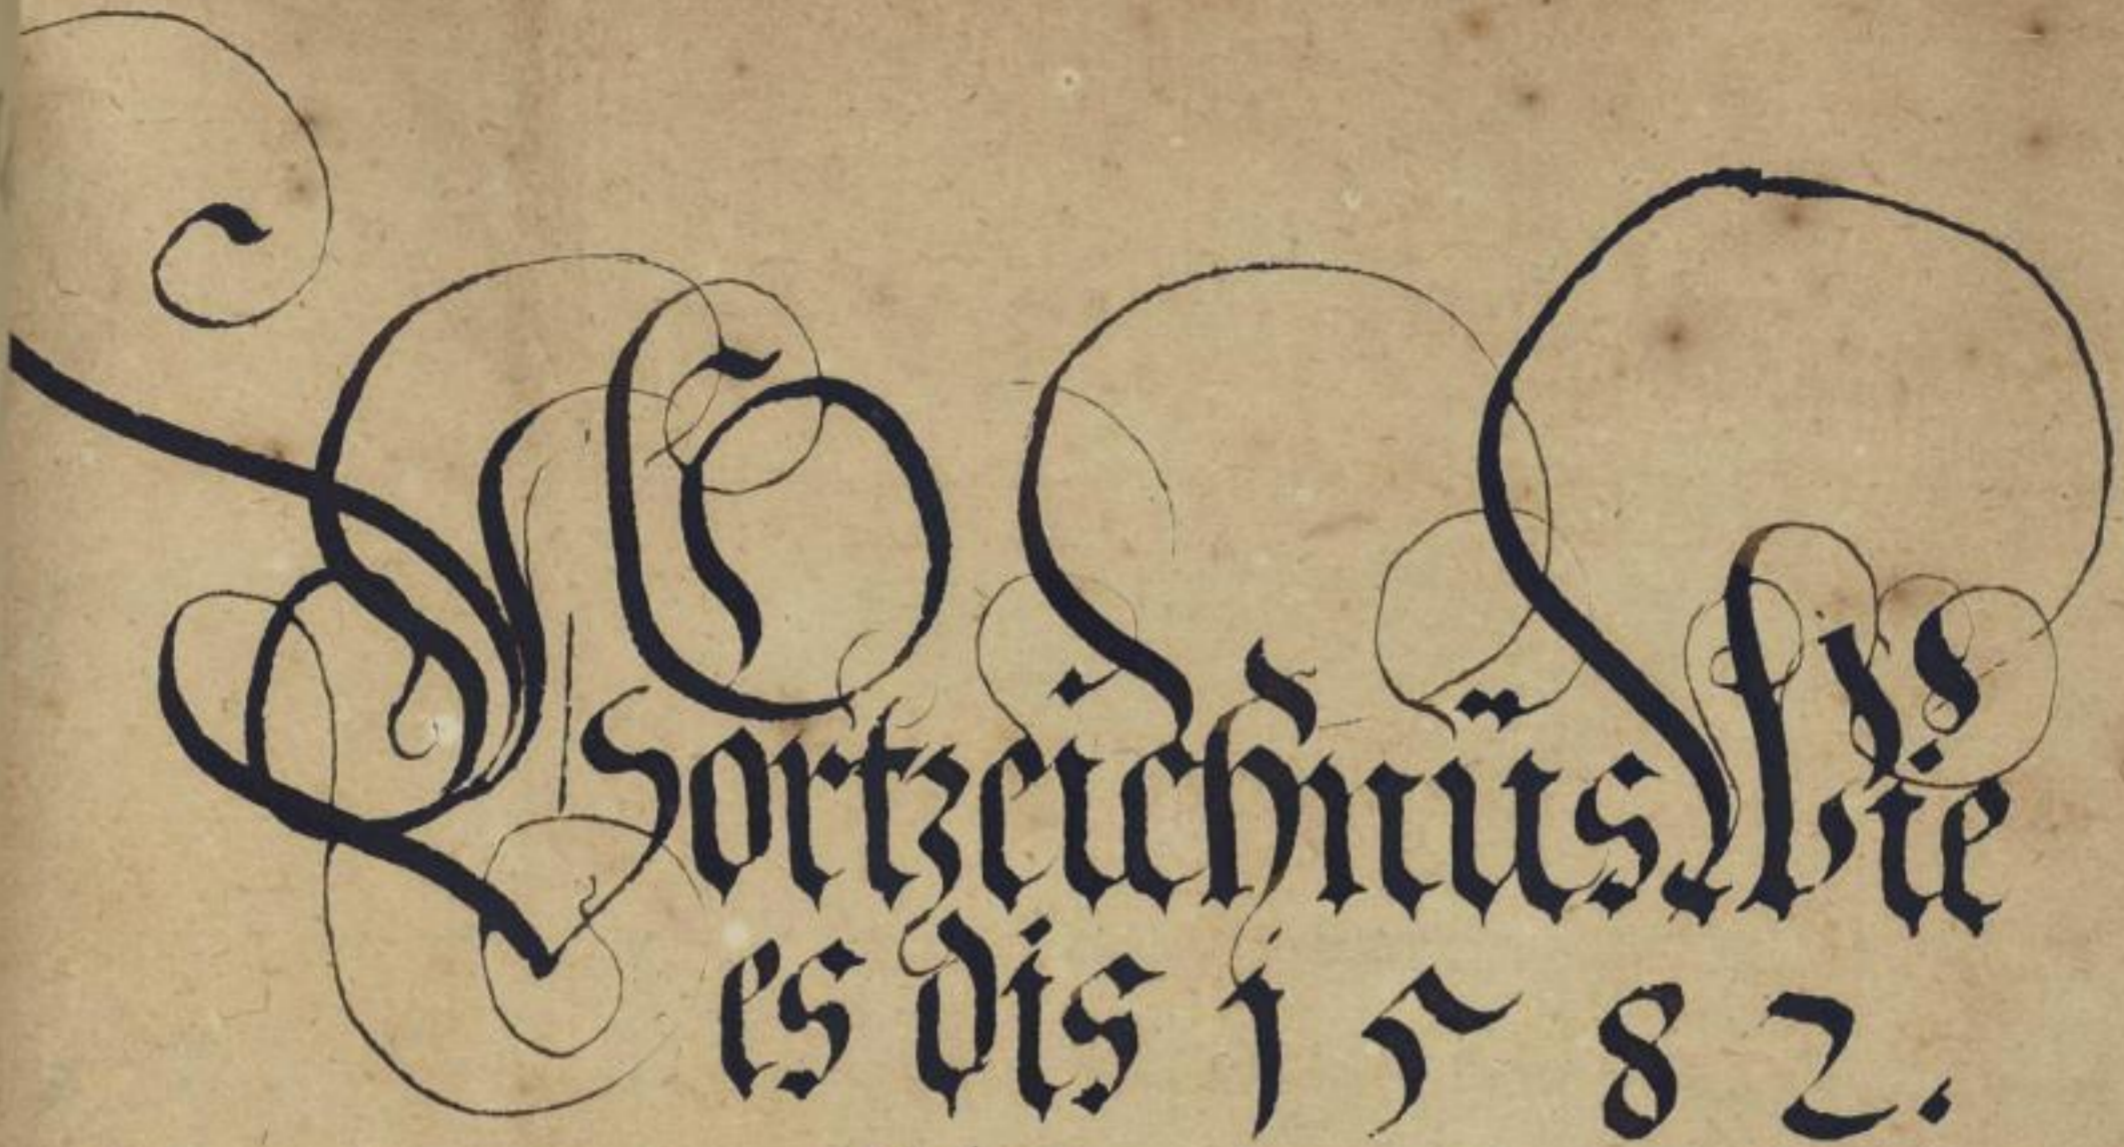 Vortzeichnüs Wie
es dis 1582.